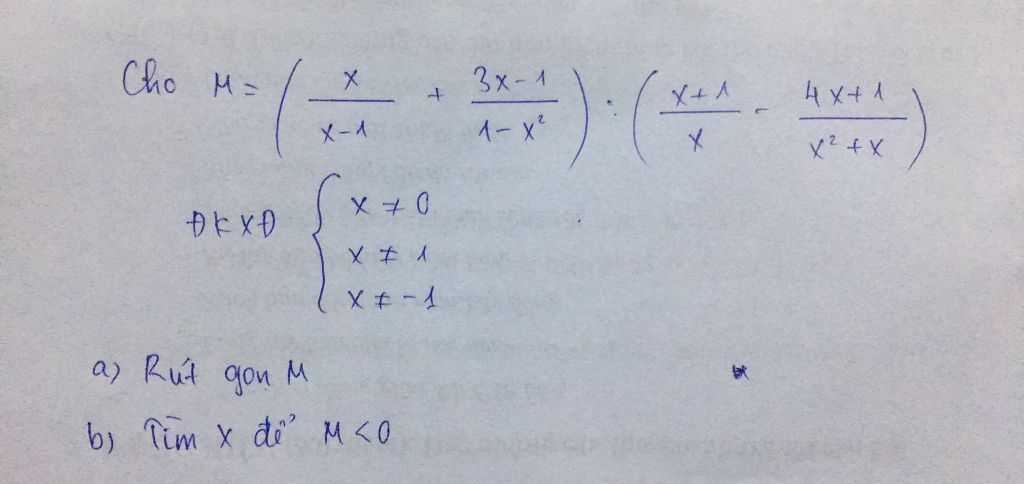 Cho M = ( x/(x-1) + (3x-1)/(1-x²) ) : ( (x+1)/x - (4x+1)/(x²+x) )
ĐKXĐ { x ≠ 0
x ≠ 1
x ≠ -1
a) Rút gọn M
b) Tìm x để M < 0